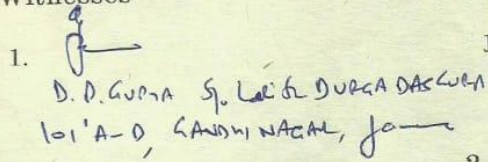 Witnesses
1.
D.D. GUPTA S/o Late Sh DURGA DAS GUPTA
101 A-D, GANDHI NAGAR,
2